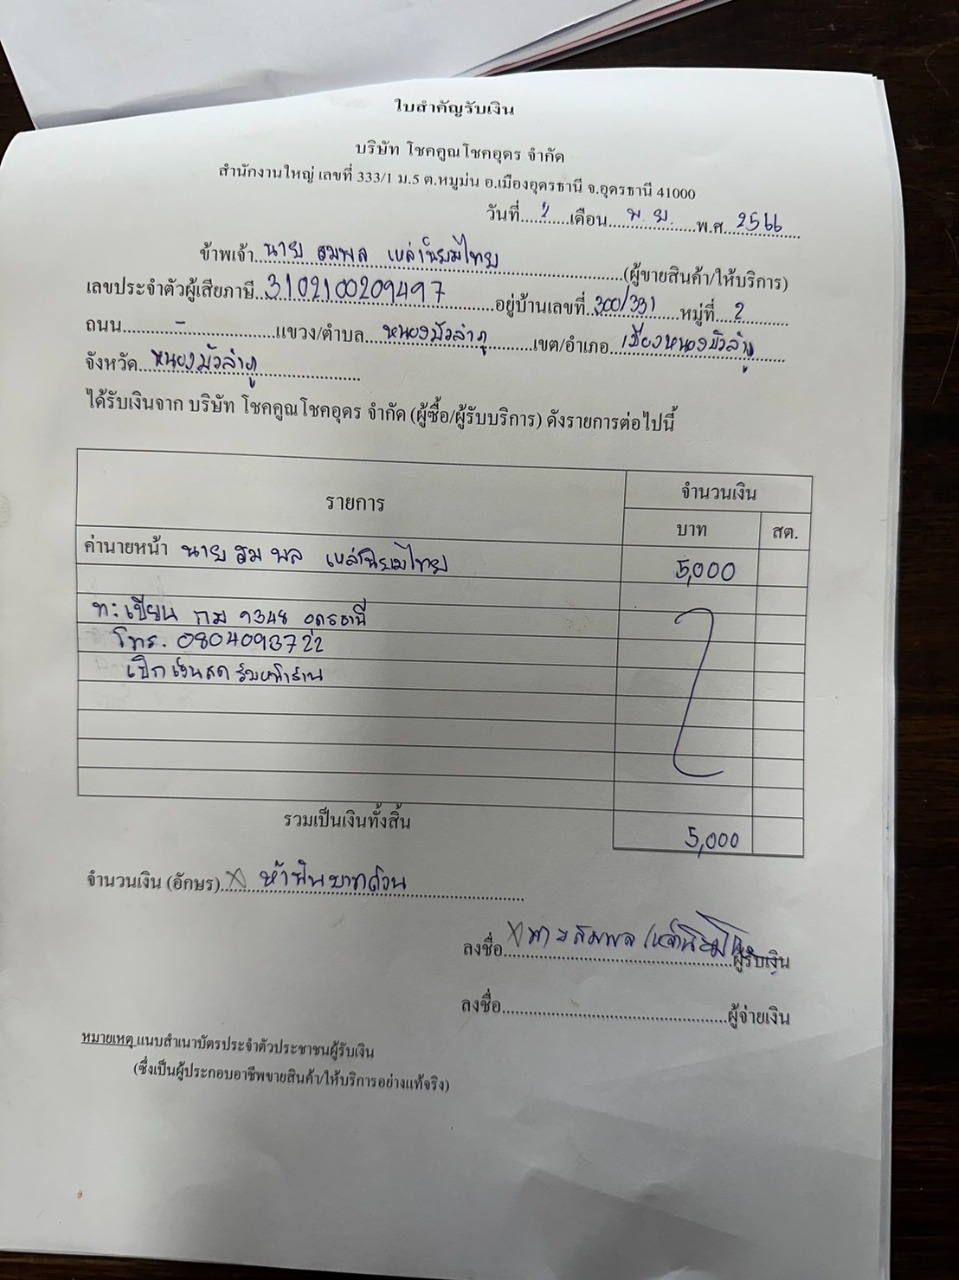 ใบสำคัญรับเงิน
บริษัท โชคคูณโชคอุดร จำกัด
สำนักงานใหญ่ เลขที่ 333/1 ม.5 ต.หมูม่น อ.เมืองอุดรธานี จ.อุดรธานี 41000
วันที่....2....เดือน....พ.ย.....พ.ศ....2566
ข้าพเจ้า...นาย สมพล เหล่านิยมไทย...(ผู้ขายสินค้า/ให้บริการ)
เลขประจำตัวผู้เสียภาษี...3102100209497...อยู่บ้านเลขที่...300/331...หมู่ที่...2...
ถนน...-...แขวง/ตำบล...หนองบัวลำภู...เขต/อำเภอ...เมืองหนองบัวลำภู
จังหวัด...หนองบัวลำภู...
ได้รับเงินจาก บริษัท โชคคูณโชคอุดร จำกัด (ผู้ซื้อ/ผู้รับบริการ) ดังรายการต่อไปนี้
รายการ จำนวนเงิน
บาท สต.
ค่านายหน้า นาย สมพล เหล่านิยมไทย 5,000
ทะเบียน กม 9348 อุดรธานี
โทร. 0804093722
เบิกเงินสดรับหน้าร้าน
รวมเป็นเงินทั้งสิ้น 5,000
จำนวนเงิน (อักษร)...ห้าพันบาทถ้วน...
ลงชื่อ...นายสมพล เหล่านิยมไทย...ผู้รับเงิน
ลงชื่อ...ผู้จ่ายเงิน
หมายเหตุ แนบสำเนาบัตรประจำตัวประชาชนผู้รับเงิน
(ซึ่งเป็นผู้ประกอบอาชีพขายสินค้า/ให้บริการอย่างแท้จริง)